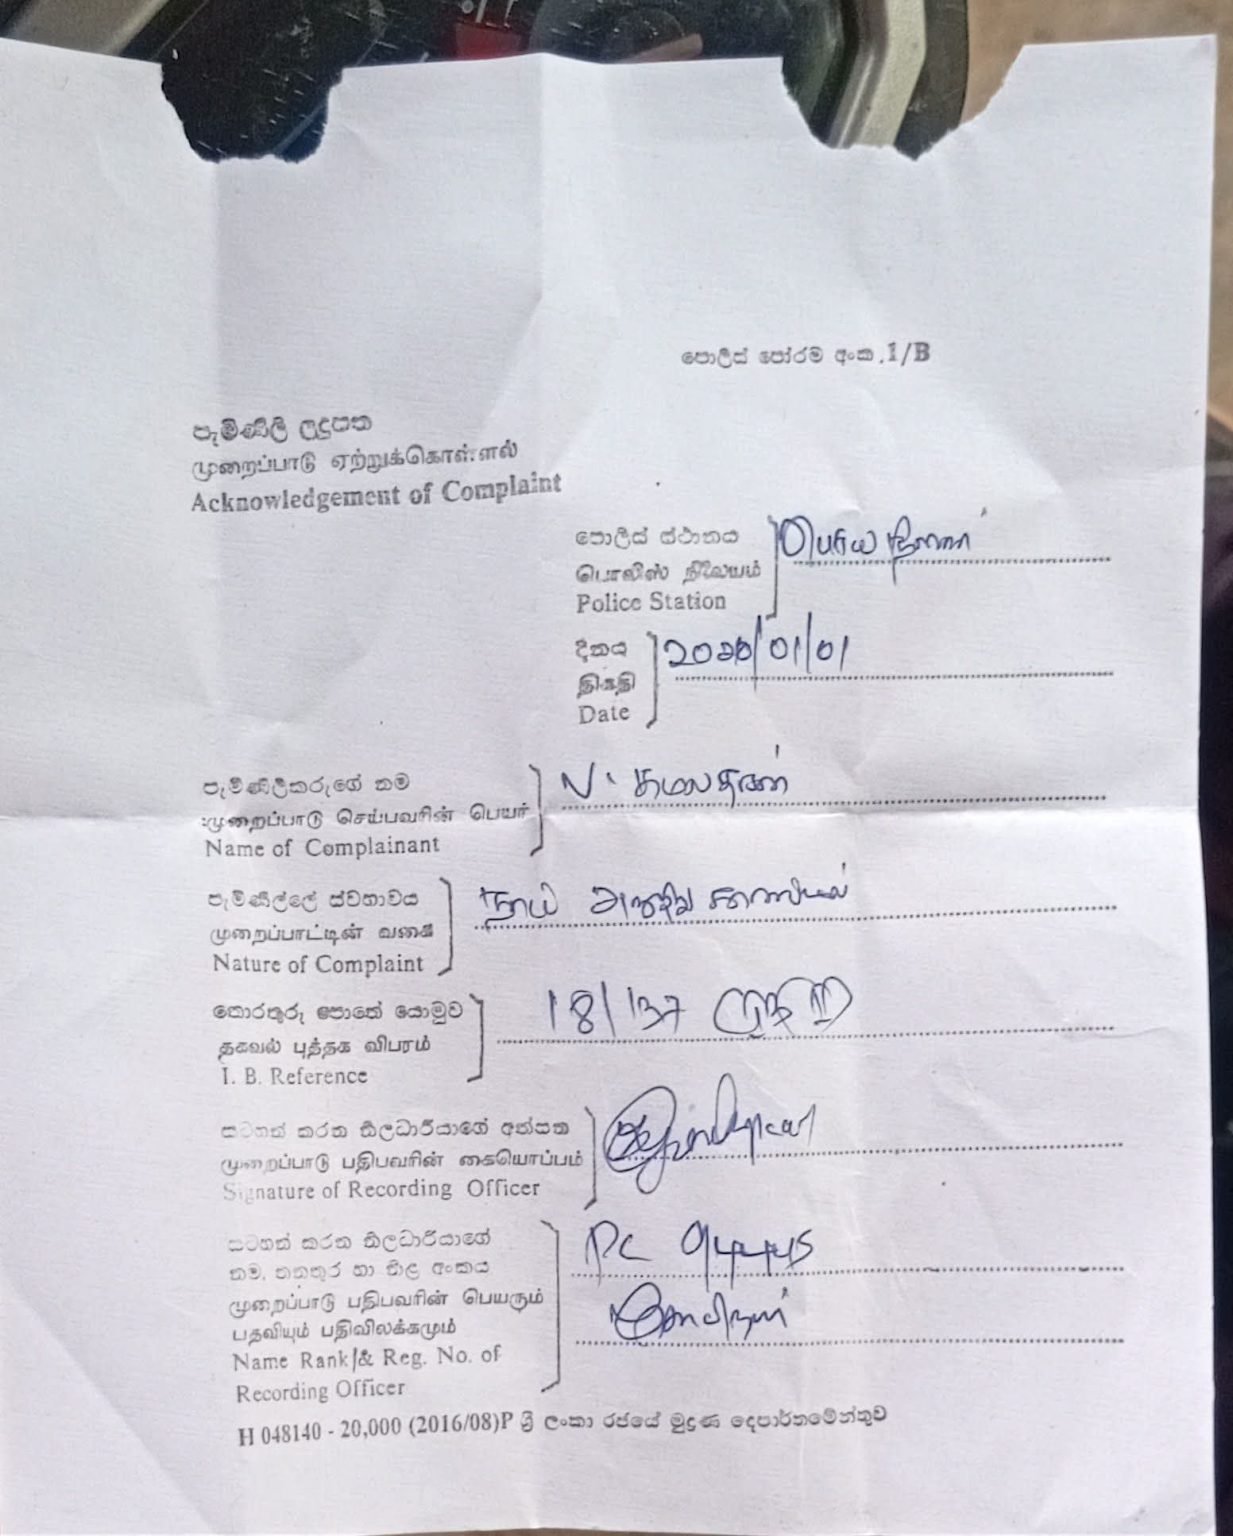 පොලිස් පෝරම අංක .1/B
පැමිණිලි ලදුපත
முறைப்பாடு ஏற்றுக்கொள்ளல்
Acknowledgement of Complaint
පොලිස් ස්ථානය
பொலிஸ் நிலையம்
Police Station
දිනය
திகதி
Date
පැමිණිලිකරුගේ නම
முறைப்பாடு செய்பவரின் பெயர்
Name of Complainant
N.
පැමිණිල්ලේ ස්වභාවය
முறைப்பாட்டின் வகை
Nature of Complaint
නොරතුරු පොතේ යොමුව
தகவல் புத்தக விபரம்
I. B. Reference
18/137
සටහන් කරන නිලධාරියාගේ අත්සන
முறைப்பாடு பதிபவரின் கையொப்பம்
Signature of Recording Officer
සටහන් කරන නිලධාරියාගේ
නම, තනතුර හා නිල අංකය
முறைப்பாடு பதிபவரின் பெயரும்
பதவியும் பதிவிலக்கமும்
Name Rank & Reg. No. of
Recording Officer
PC 94445
H 048140 - 20,000 (2016/08)P ශ්‍රී ලංකා රජයේ මුද්‍රණ දෙපාර්තමේන්තුව